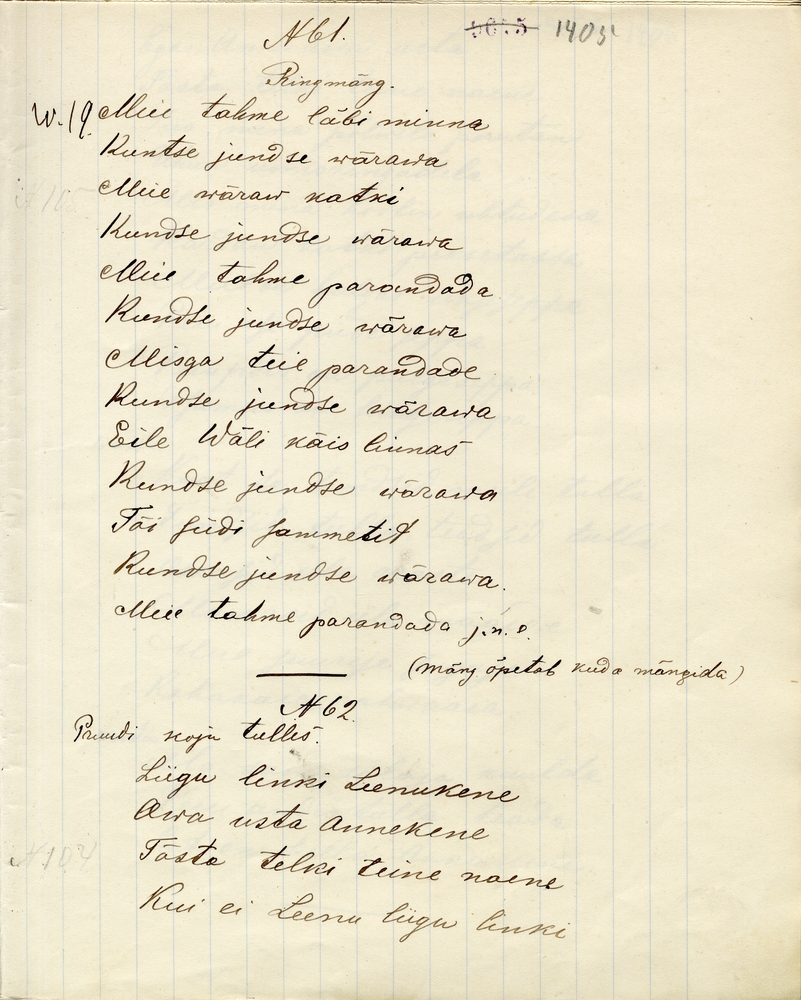 N 61. 1405
Ringmäng.
W. 19. Meie tahme läbi minna
Kuntse jundse wärawa
Meie wäraw katki
Kundse jundse wärawa
Meie tahme parandada
Kundse jundse wärawa
Misga teie parandade
Kundse jundse wärawa
Eile Wäli käis linnas
Kundse jundse wärawa
Tõi siidi sammetit
Kundse jundse wärawa.
Meie tahme parandada j. n. e.
(mäng õpetab kuda mängida)
N 62.
Pruudi koju tulles.
Liigu linki Leenukene
Awa usta Annekene
Tõsta telki teine naene
Kui ei Leenu liigu linki